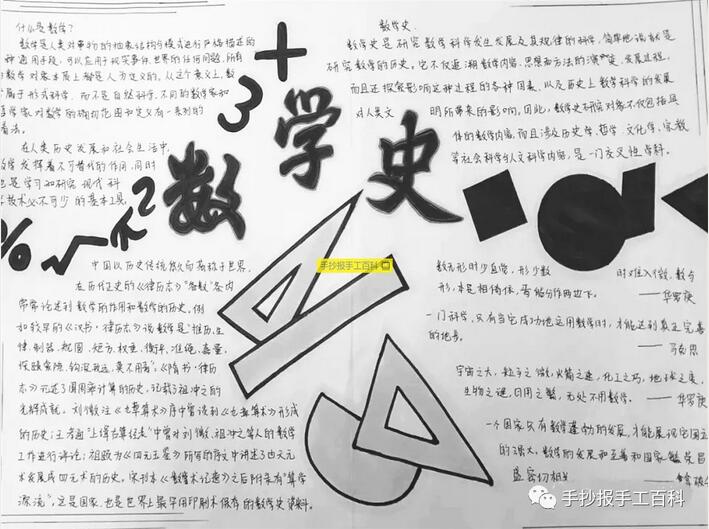 什么是数学?
数学是人类对事物的抽象结构与模式进行严格描述的
种通用手段,可以应用于现实事件世界的任何问题,所有
数学对象本质上都是人为定义的。从这个意义上,数
属于形式科学,而不是自然科学。不同的数学家和
哲学家对数学的确切范围和定义有一系列的
看法。
在人类历史发展和社会生活中,
数学发挥着不可替代的作用,同时
也是学习和研究现代科
技术必不可少的基本工具
数学史
数学史是研究数学科学发生发展及其规律的科学,简单地说就是
研究数学的历史。它不仅追溯数学内容、思想和方法的演变、发展过程,
而且还探索影响这种过程的各种因素,以及历史上数学科学的发展
对人类文明所带来的影响。因此,数学史研究对象不仅包括具
体的数学内容,而且涉及历史学、哲学、文化学、宗教
等社会科学与人文科学内容,是一门交叉性学科。
+
3
数学史
% √ π 2
手抄报手工百科
中国以历史传统悠久而著称于世界,
在历代正史的《律历志》"备数"条内
常常论述到数学的作用和数学的历史。例
如较早的《汉书·律历志》说数学是"推历生
律、制器、规圆、矩方、权重、衡平、准绳、嘉量,
探赜索隐,钩深致远,莫不用焉"。《隋书·律历
志》记述了圆周率计算的历史,记载了祖冲之的
光辉成就。刘徽注《九章算术》序中曾谈到《九章算术》形成
的历史;王孝通"上缉古算经表"中曾对刘徽、祖冲之等人的数学
工作进行评论;祖颐为《四元玉鉴》所写的序文中讲述了由天元
术发展成四元术的历史。宋刊本《数术记遗》之后附录有"算学
源流",这是国家,也是世界上最早用印刷术保存的数学史资料。
数无形时少直觉,形少数时难入微,数与
形,本是相倚依,焉能分作两边飞。
——华罗庚
一门科学,只有当它成功地运用数学时,才能达到真正完善
的地步。
——马克思
宇宙之大,粒子之微,火箭之速,化工之巧,地球之变,
生物之谜,日用之繁,无处不用数学。——华罗庚
一个国家只有数学蓬勃的发展,才能展现它国立
的强大。数学的发展和至善和国家繁荣昌
盛密切相关
手抄报手工百科